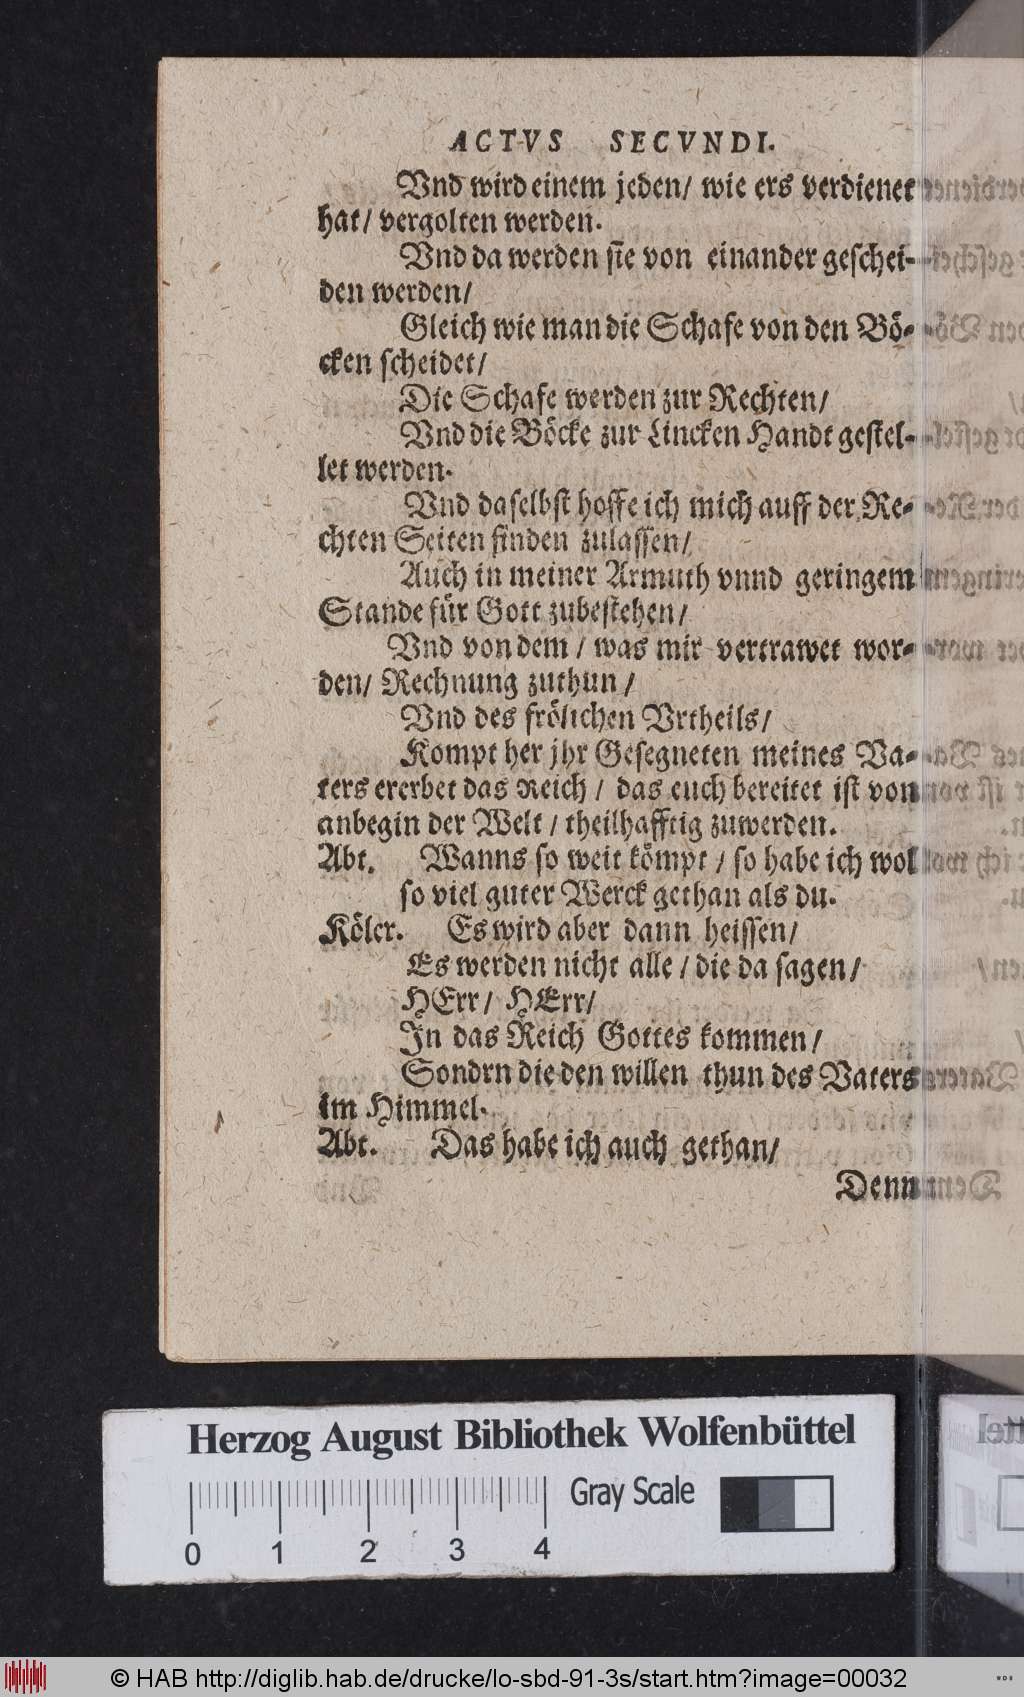 ACTVS SECVNDI.
Vnd wird einem jeden/ wie ers verdienet
hat/ vergolten werden.
Vnd da werden sie von einander geschei-
den werden/
Gleich wie man die Schafe von den Bö-
cken scheidet/
Die Schafe werden zur Rechten/
Vnd die Böcke zur Lincken Handt gestel-
let werden.
Vnd daselbst hoffe ich mich auff der Re-
chten Seiten finden zulassen/
Auch in meiner Armuth vnnd geringem
Stande für Gott zubestehen/
Vnd von dem / was mir vertrawet wor-
den/ Rechnung zuthun /
Vnd des frölichen Vrtheils/
Kompt her jhr Gesegneten meines Va-
ters ererbet das Reich / das euch bereitet ist von
anbegin der Welt / theilhafftig zuwerden.
Abt. Wanns so weit kömpt / so habe ich wol
so viel guter Werck gethan als du.
Köler. Es wird aber dann heissen/
Es werden nicht alle / die da sagen/
HErr/ HErr/
In das Reich Gottes kommen/
Sondrn die den willen thun des Vaters
im Himmel.
Abt. Das habe ich auch gethan/
Denn
Herzog August Bibliothek Wolfenbüttel
Gray Scale
0 1 2 3 4
© HAB http://diglib.hab.de/drucke/lo-sbd-91-3s/start.htm?image=00032